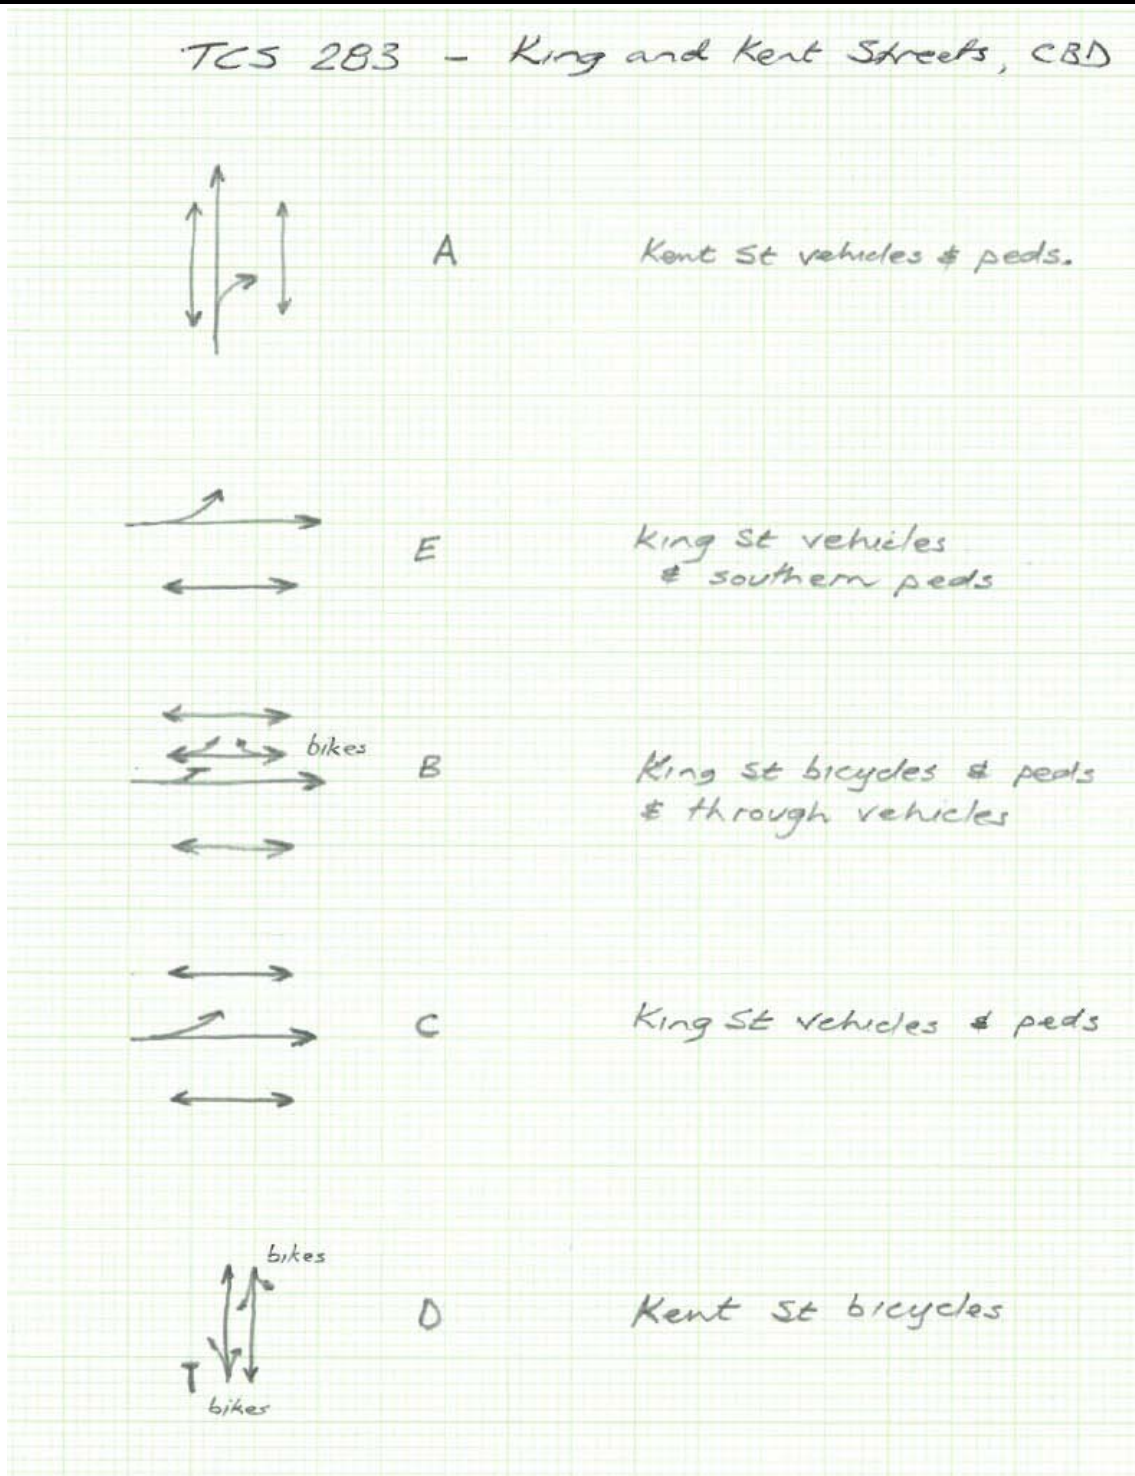 TCS 283 - King and Kent Streets, CBD
A Kent St vehicles & peds.
E King St vehicles
& southern peds
bikes B King St bicycles & peds
& through vehicles
C King St vehicles & peds
bikes
D Kent St bicycles
T
bikes